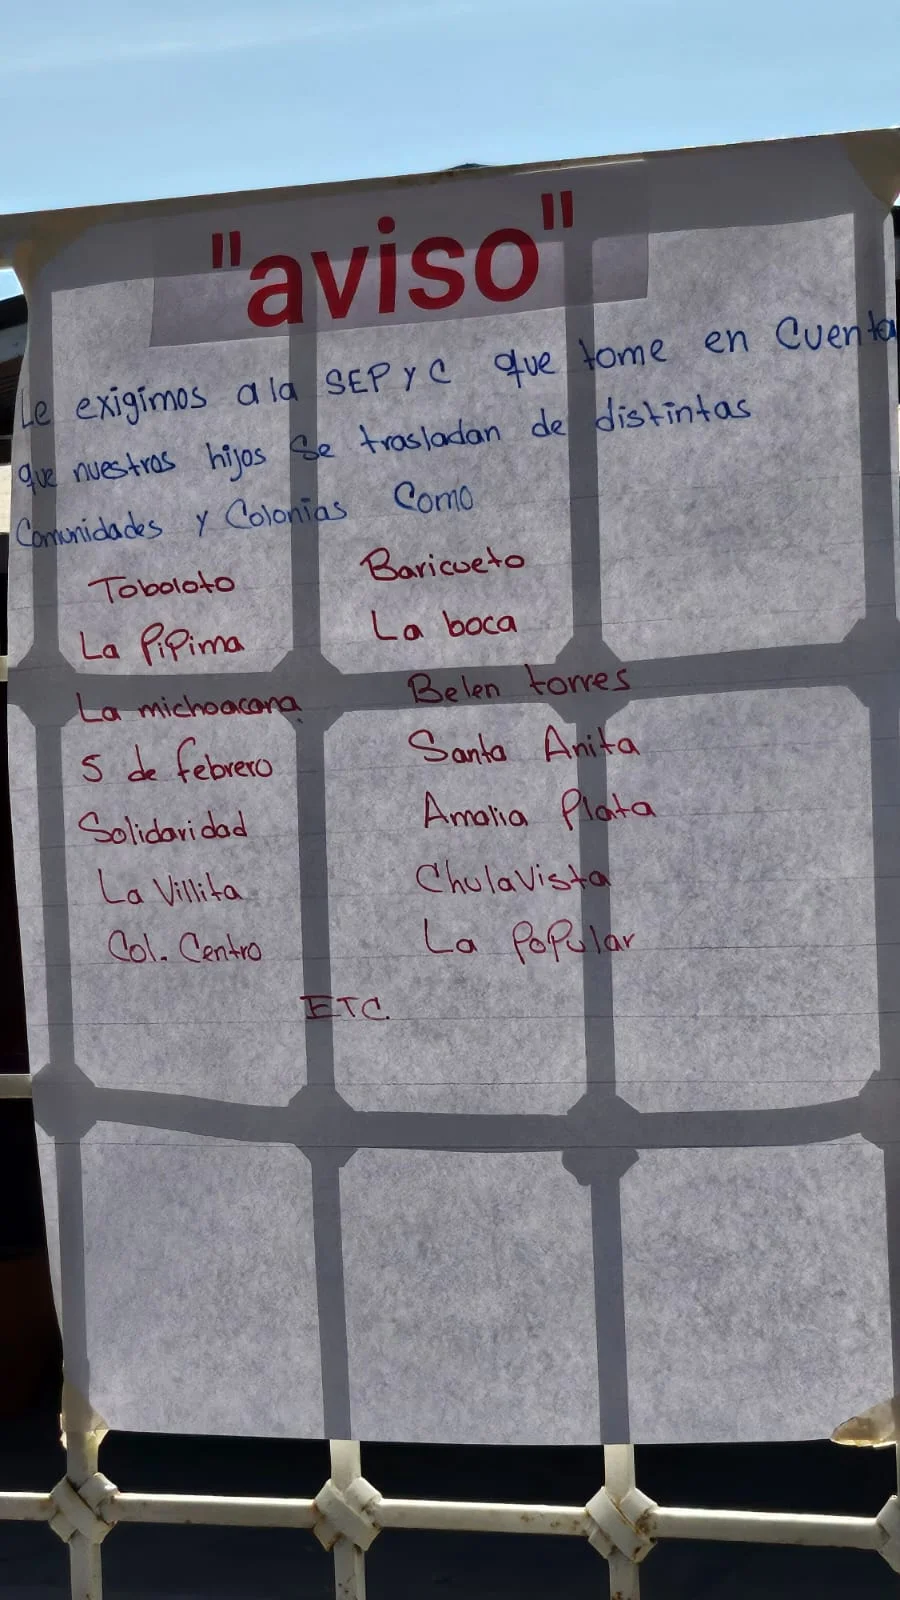 "aviso"
Le exigimos a la SEP y C que tome en Cuenta
que nuestros hijos se trasladan de distintas
Comunidades y Colonias Como
Toboloto Baricueto
La Pipima La boca
La michoacana Belen torres
5 de febrero Santa Anita
Solidaridad Amalia Plata
La Villita Chulavista
Col. Centro La Popular
ETC.